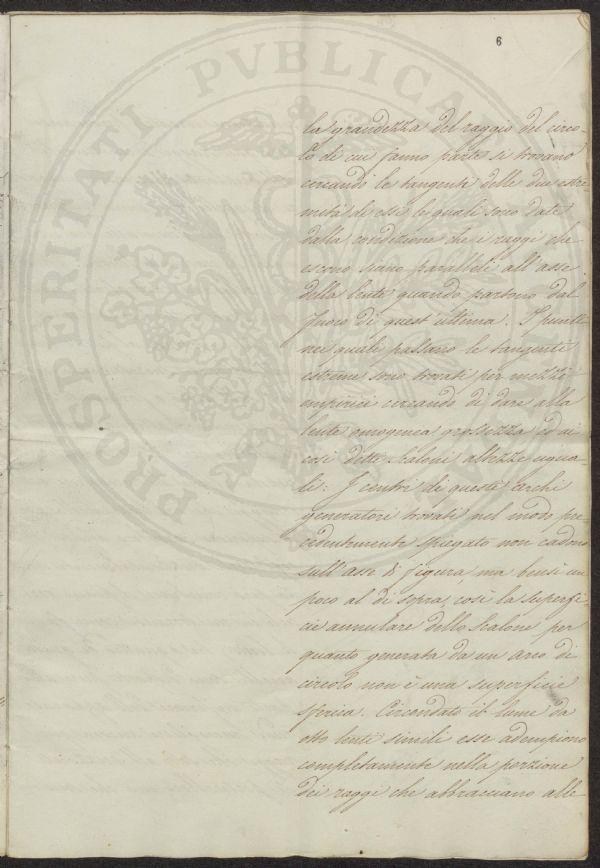 6
la grandezza del raggio del circo-
lo di cui fanno parte si trovano
cercando le tangenti delle due estre-
mità di essi le quali sono date
dalla condizione che i raggi che
escono siano paralleli all'asse
della lente quando partono dal
fuoco di quest'ultima. I punti
nei quali passano le tangenti
estreme sono trovati per mezzi
empirici cercando di dare alla
lente omogenea grossezza ed ai
così detti scaloni altezze ugua-
li: I centri di questi archi
generatori trovati nel modo pre-
cedentemente spiegato non cadono
sull'asse di figura, ma bensì un
poco al di sopra, così la superfi-
cie annulare dello scalone per
quanto generata da un arco di
circolo non è una superficie
sferica. Circondato il lume da
otto lenti simili esse adempiono
completamente nella porzione
dei raggi che abbracciano alle
PROSPERITATI PVBLICAE